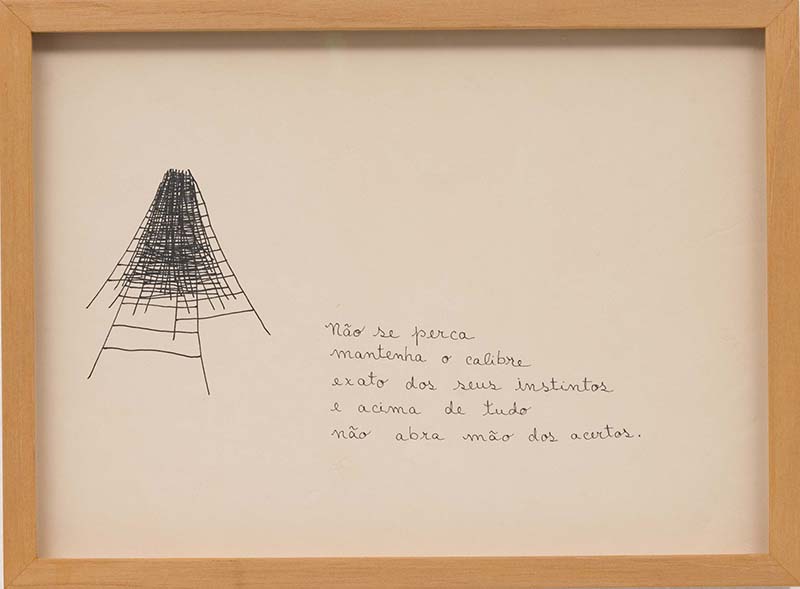 Não se perca
mantenha o calibre
exato dos seus instintos
e acima de tudo
não abra mão dos acertos.